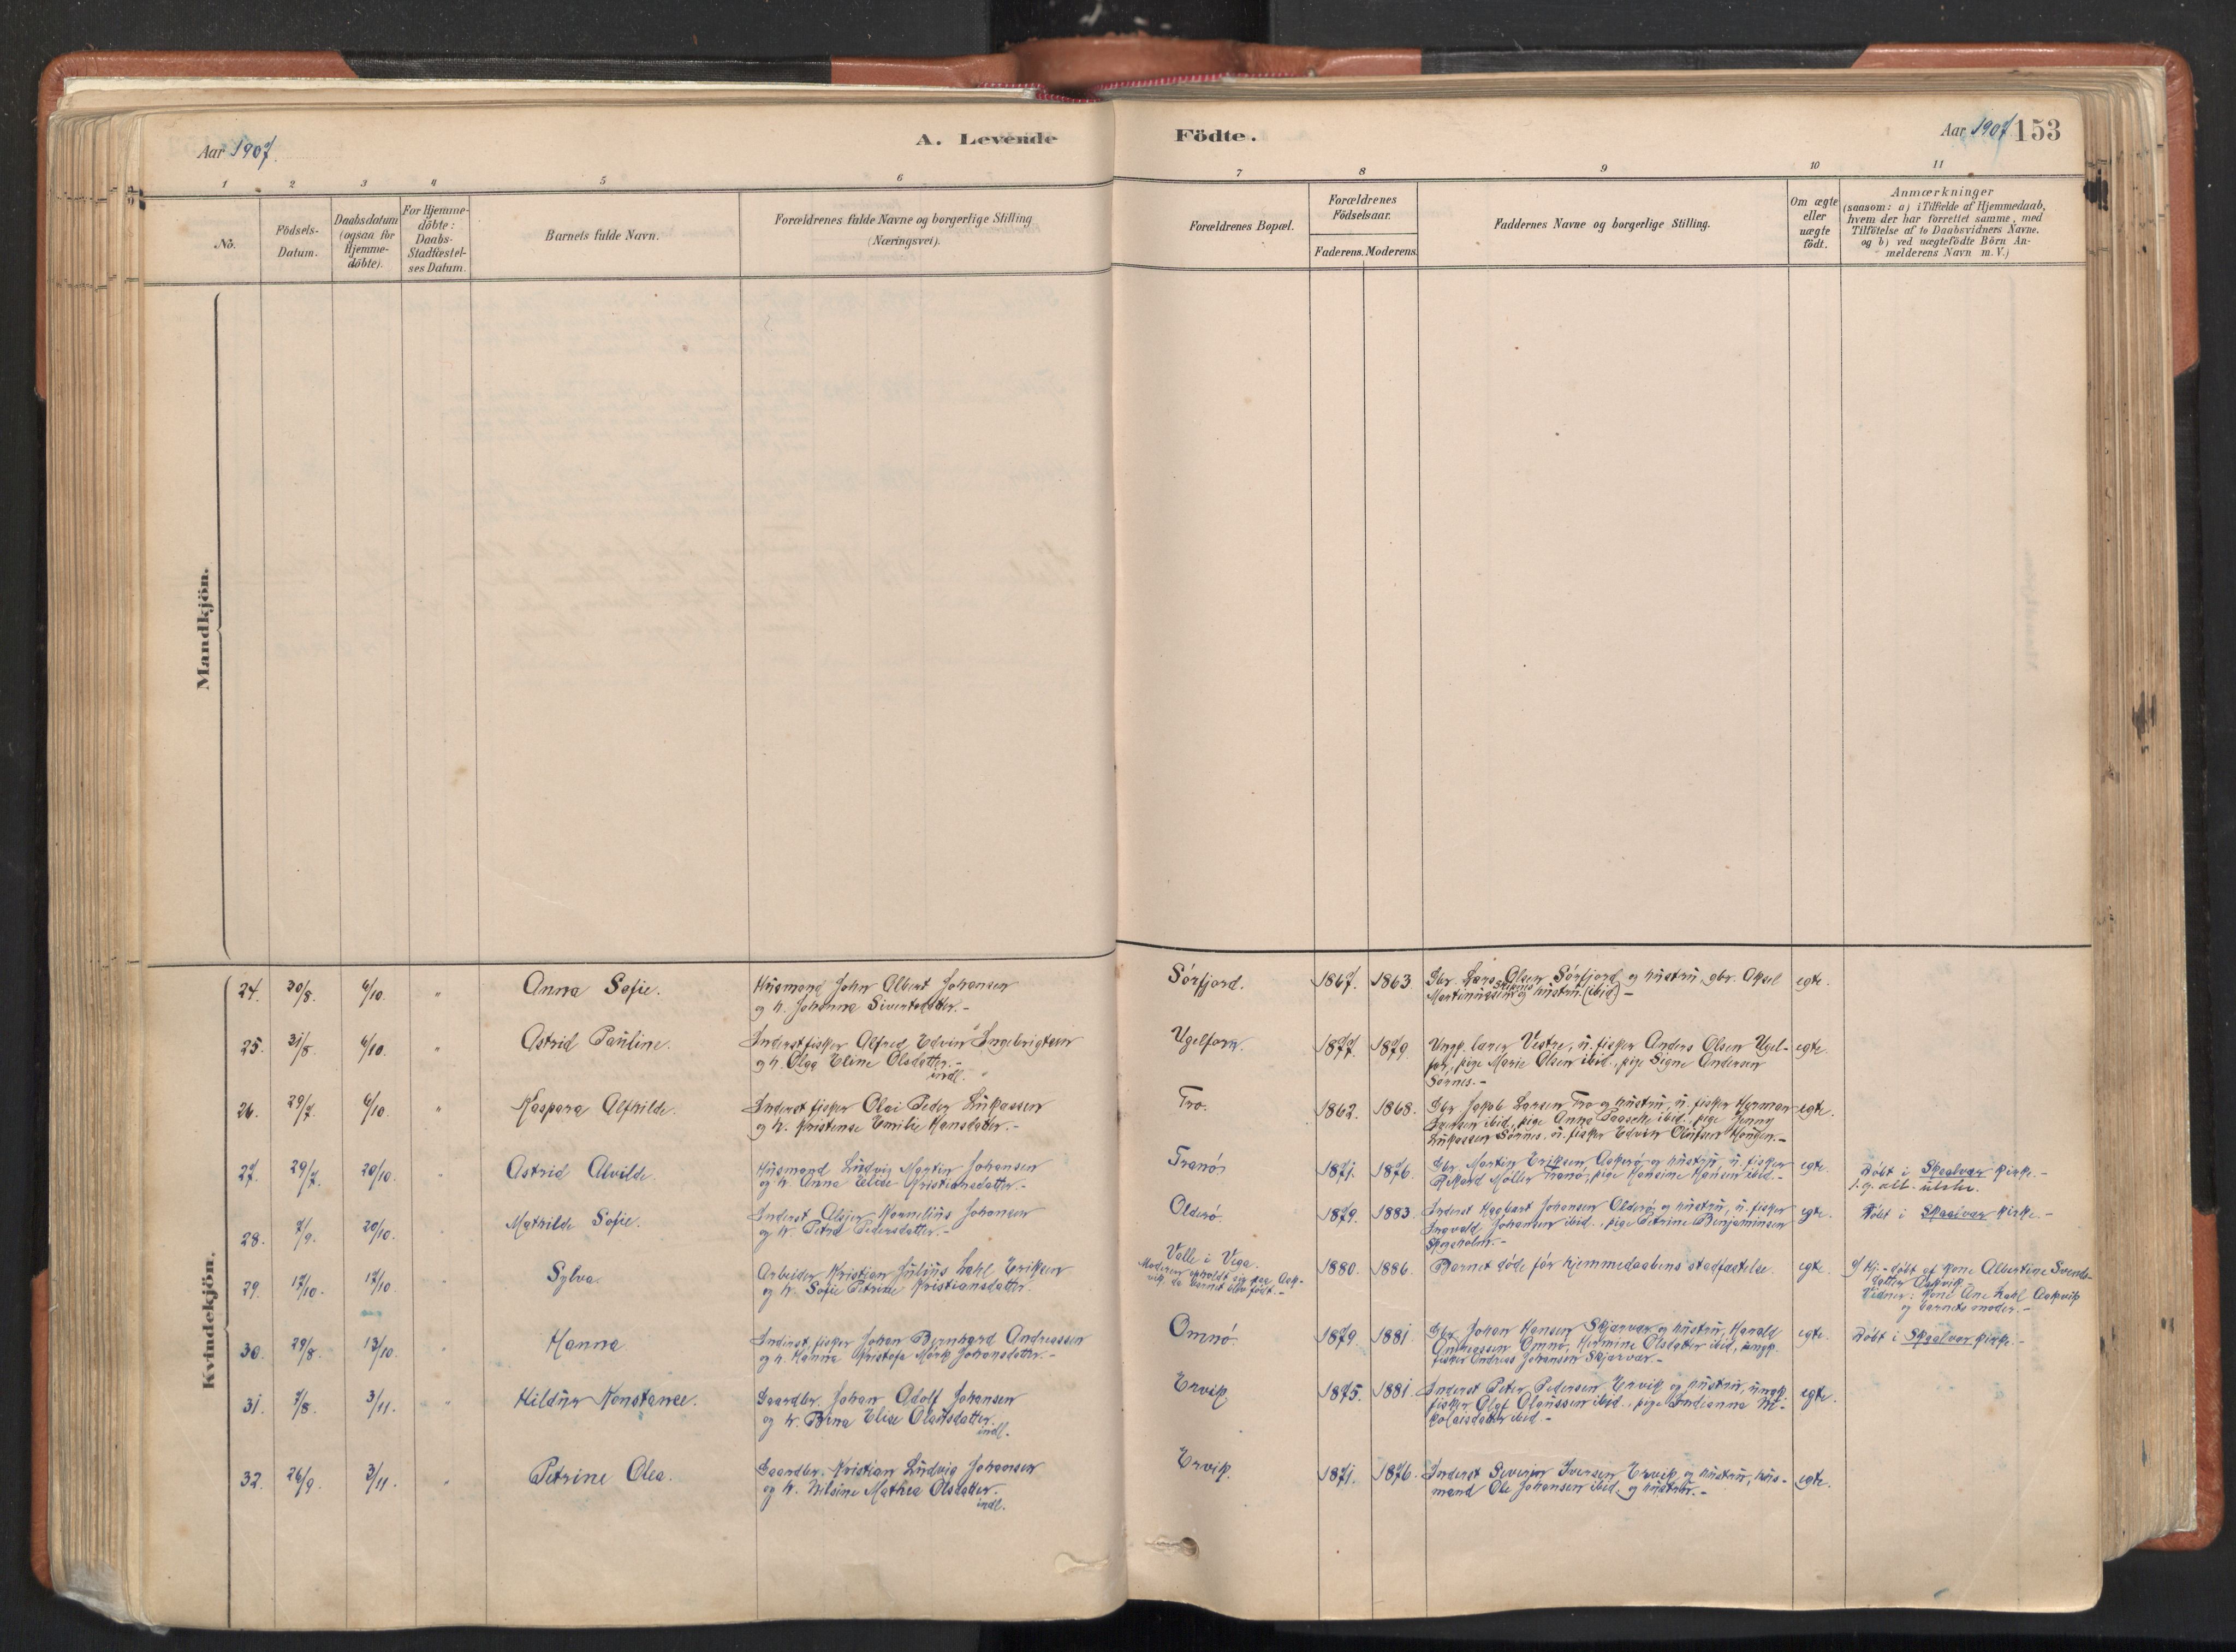 Aar 1907.
A. Levende
Födte.
Aar 1907
153
1 2 3 4 5 6 7 8 9 10 11
No.
Födsels-
Datum.
Daabsdatum
(ogsaa for
Hjemme-
döbte).
For Hjemme-
döbte:
Daabs-
Stadfæstel-
ses Datum.
Barnets fulde Navn.
Forældrenes fulde Navne og borgerlige Stilling
(Næringsvei).
Forældrenes Bopæl.
Forældrenes
Födselsaar.
Faderens. Moderens.
Faddernes Navne og borgerlige Stilling.
Om ægte
eller
uægte
födt.
Anmærkninger
(saasom: a) i Tilfælde af Hjemmedaab,
hvem der har forrettet samme, med
Tilföielse af to Daabsvidners Navne.
og b) ved uægtefödte Börn An-
melderens Navn m. V.)
Mandkjön.
Kvindekjön.
24. 30/8. 6/10. " Anna Sofie.
Husmand John Albert Johansen
og h. Johanna Sivertsdatter.-
Sörfjord. 1867. 1863
Gbr. Lars Olsen Sörfjord og hustru, gbr. Aksel
Martinussen og hustru (ibid) -
egte.
25. 31/8. 6/10. " Astrid Pauline.
Inderst fisker Alfred Edvin Ingebrigtsen
og h. Olga Eline Olsdatter.-
indl.
Ugelforn. 1877. 1879.
Ungk. lærer Vestre, u. fisker Anders Olsen Ugel-
for, pige Marie Olsen ibid., pige Signe Andersen
Sörnes.-
egte.
26. 29/7. 6/10. " Kaspara Alfhilde.
Inderst fisker Olai Peder Lukassen
og h. Kristense Emilie Hansdatter.-
Tro. 1862. 1868.
Gbr. Jakob Larsen Tro og hustru, u. fisker Herman
Iversen ibid., pige Anna Paasche ibid., pige Jenny
Lukassen Sörnes, u. fisker Edvin Olufsen Haugen.-
egte.
27. 29/7. 20/10. " Astrid Alvilde.
Husmand Ludvig Martin Johansen
og h. Anna Elise Kristiansdatter.-
Tranö. 1871. 1876.
Gbr. Martin Eriksen Aakerö og hustru, u. fisker
Rikard Möller Tranö, pige Hansine Hansen ibid.-
egte.
Döbt i Skaalvær kirke.-
28. 7/9. 20/10. " Mathilde Sofie.
Inderst Kornelius Johansen
og h. Petra Pedersdatter.-
Olderö. 1879. 1883.
Inderst Hagbart Johansen Olderö og hustru, u. fisker
Ingvald Johansen ibid., pige Petrine Benjaminsen
Skogsholm.-
egte.
Döbt i Skaalvær kirke.-
29. 17/10. 17/10 Sylva.
Arbeider Kristian Julius Dahl Eriksen
og h. Sofie Petrine Kristiansdatter.
Valle i Vega.
Moderen opholdt sig paa Aak-
vik, da barnet blev födt.-
1880. 1886.
Barnet döde för hjemmedaabens stadfæstelse.
egte.
Hj.-döbt af kone Albertine Svends-
datter Aakvik.
Vidner: kone Ane Dahl Aakvik
og barnets moder.-
30. 29/8. 13/10. " Hanna
Inderst fisker Johan Bernhard Andreassen
og h. Hanna Kristofa Mörk Johansdatter.-
Omnö. 1879. 1881.
Gbr. Johan Hansen Skjærvær og hustru, Harald
Andreassen Omnö, Hermine Olsdatter ibid., ungk.
fisker Andreas Johansen Skjærvær.-
egte.
Döbt i Skaalvær kirke.-
31. 7/8. 3/11. " Hildur Konstance.
Gaardbr. Johan Adolf Johansen
og h. Bina Elise Olausdatter.
indl.
Ervik. 1875. 1881.
Inderst Peter Pedersen Ervik og hustru, ungk.
fisker Olaf Olaussen ibid., pige Indianna Ni-
kolaisdatter ibid.-
egte.
32. 26/9. 3/11. " Petrine Olea.
Gaardbr. Kristian Ludvig Johansen
og h. Nilsine Mathea Olsdatter.
indl.
Ervik. 1871. 1876.
Inderst Severin Iversen Ervik og hustru, hus-
mand Ole Johansen ibid. og hustru.-
egte.